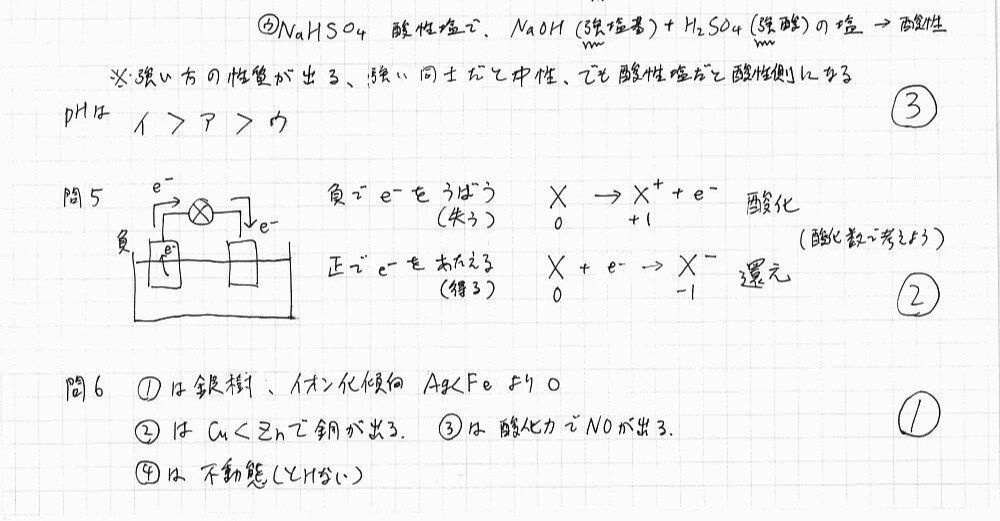 ㋒NaHSO4 酸性塩で、NaOH(強塩基)+H2SO4(強酸)の塩 → 酸性
※強い方の性質が出る、強い同士だと中性、でも酸性塩だと酸性側になる
pHは イ > ア > ウ
③
問5
e⁻
e⁻
負
e⁻
負で e⁻を うばう X → X⁺ + e⁻ 酸化
(失う) 0 +1
(酸化数で考えよう)
正で e⁻を あたえる X + e⁻ → X⁻ 還元
(得る) 0 -1
②
問6 ①は銀樹、イオン化傾向 Ag<Fe より○
①
②は Cu<Znで銅が出る. ③は 酸化力でNOが出る.
④は 不動態(とけない)